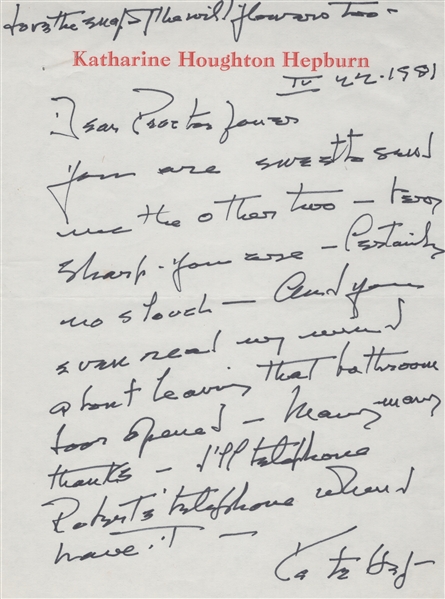 love the snaps of the wild flowers too -
Katharine Houghton Hepburn
IV 22 - 1981
Dear Proctor Jones
You are sweet to send
me the other two - Very
sharp - you are - Certainly
no slouch - And you
even read my mind
about leaving that bathroom
door opened - Many many
thanks - I'll telephone
Roberts' telephone when I
have it -
Kate Hep -